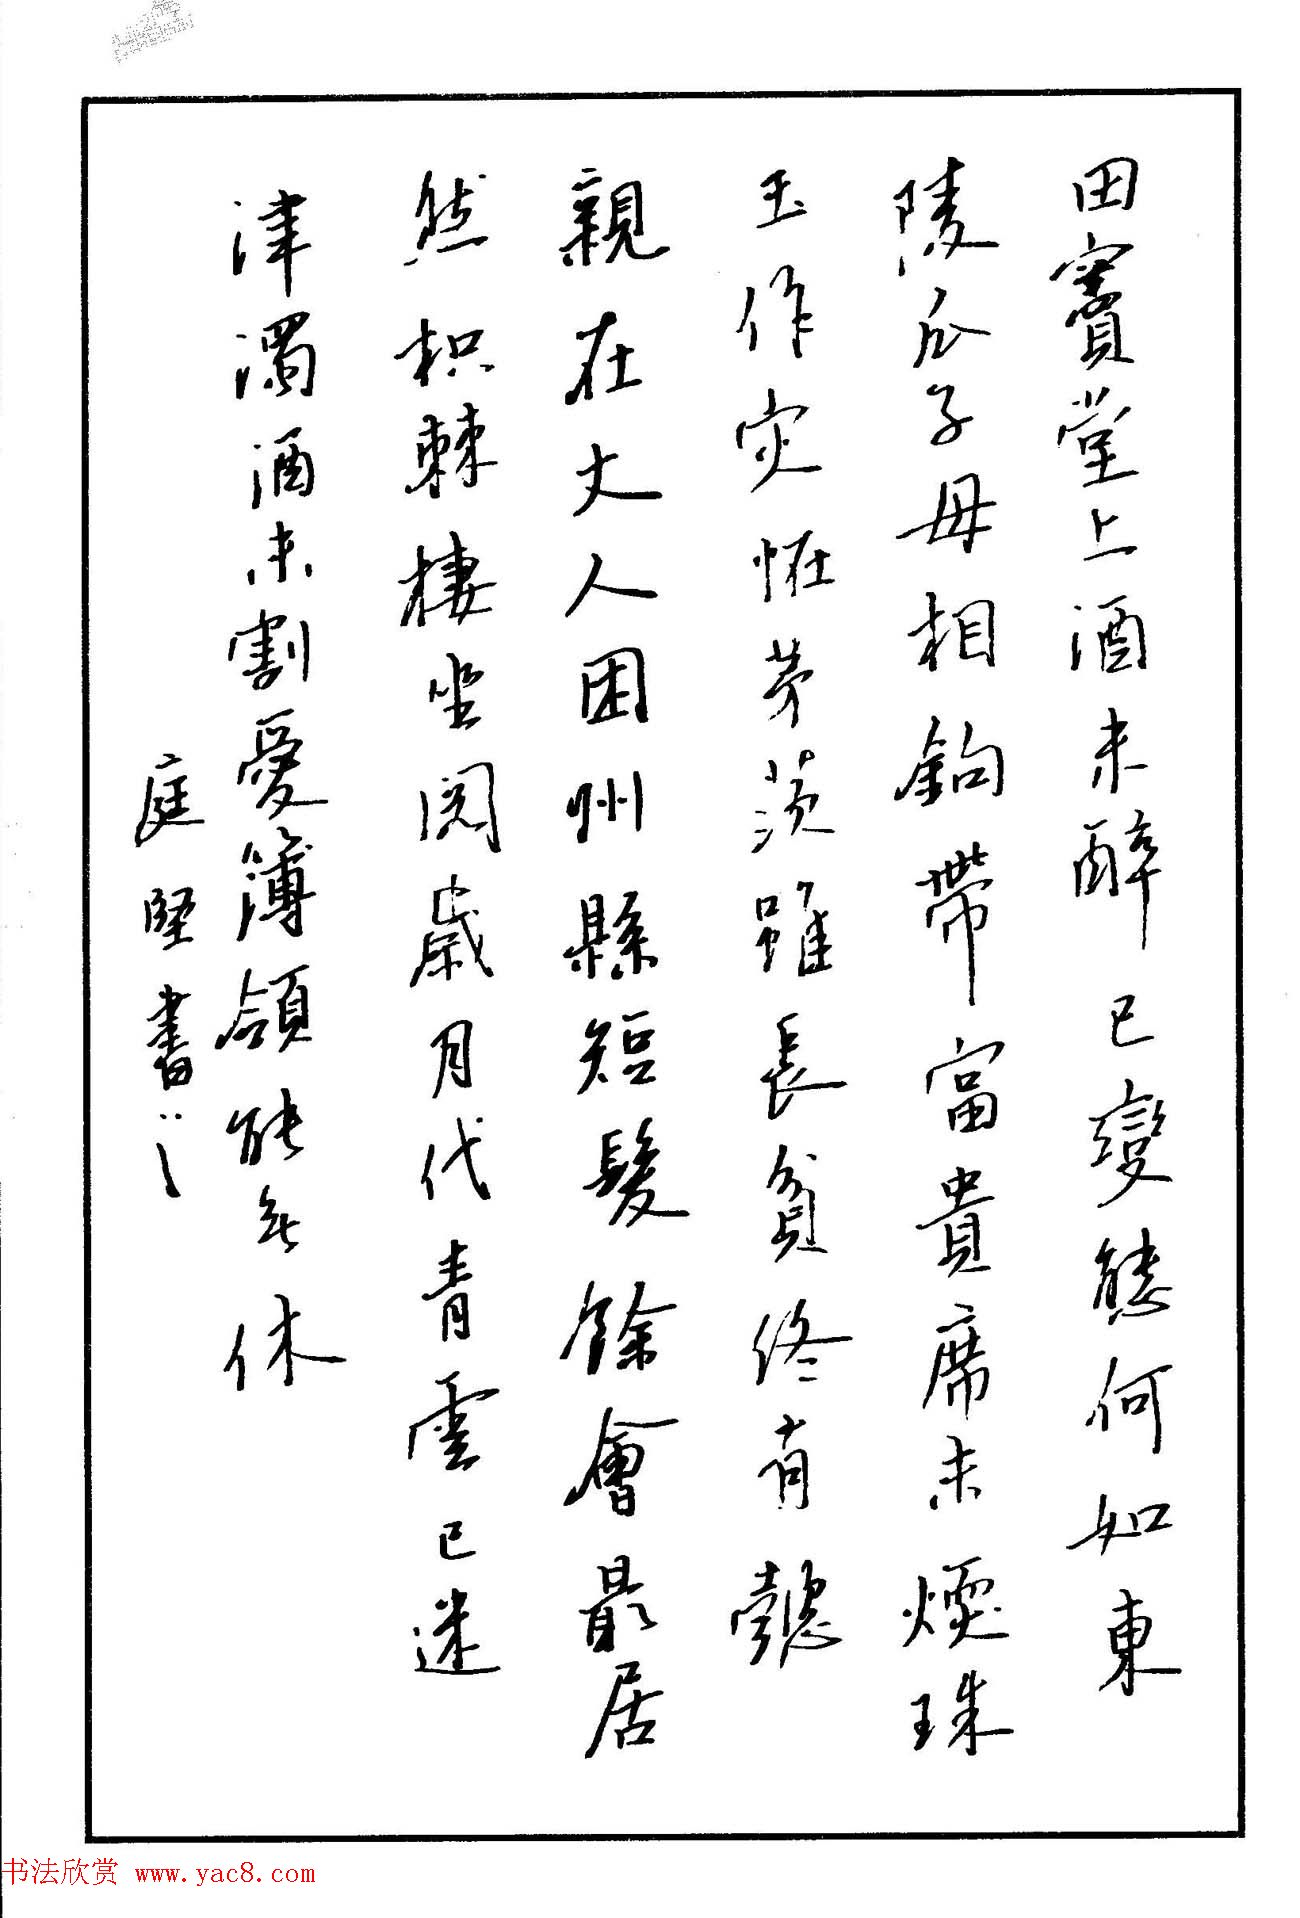 田竇堂上酒未醉已變態何如東
陵瓜子母相鉤帶富貴席未煖珠
玉作灾怪茅茨雖長貧終有懿
親在丈人困州縣短髮餘會最居
然枳棘棲坐閱歲月代青雲已迷
津濁酒未割愛簿領能無休
庭堅書
书法欣赏 www.yac8.com